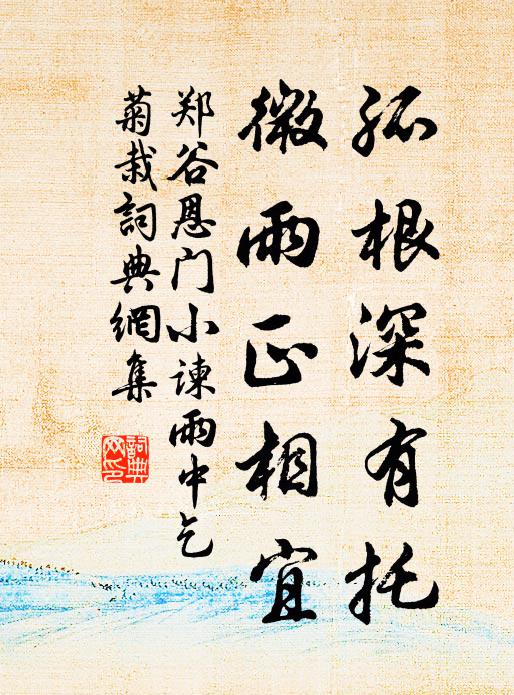 孤根深有托
微雨正相宜
郑谷恩门小谏雨中乞
菊栽詞典網集
詞典